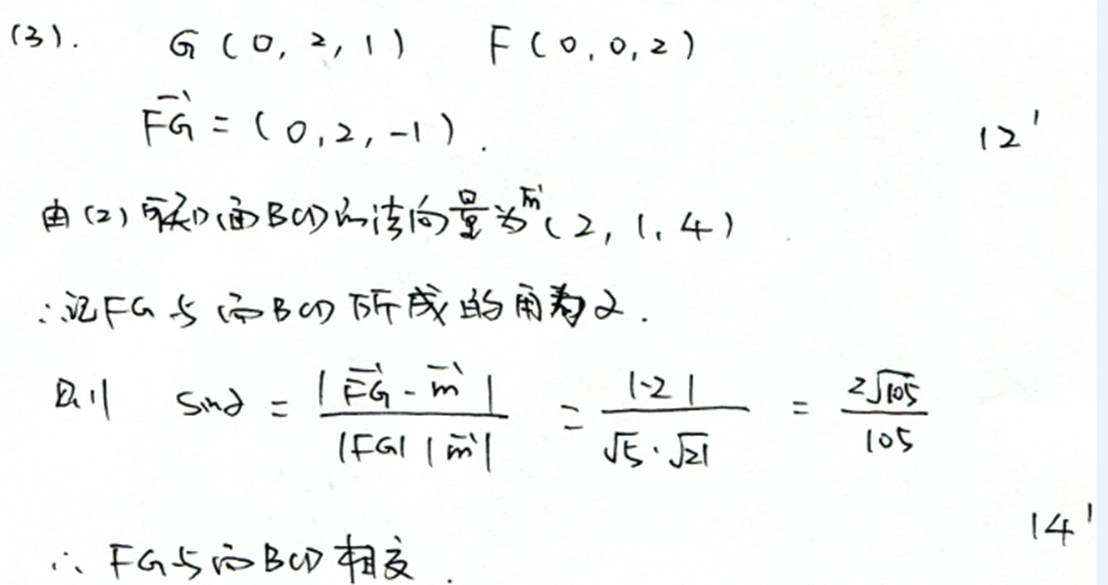 (3). G(0,2,1) F(0,0,2)
→FG = (0,2,-1). 12'
由(2)可知面BCD的法向量为→m(2,1,4)
∴记FG与面BCD所成的角为α.
则 sinα = |→FG - →m| / |FG| |→m| = |-2| / √5·√21 = 2√105 / 105
14'
∴ FG与面BCD相交.